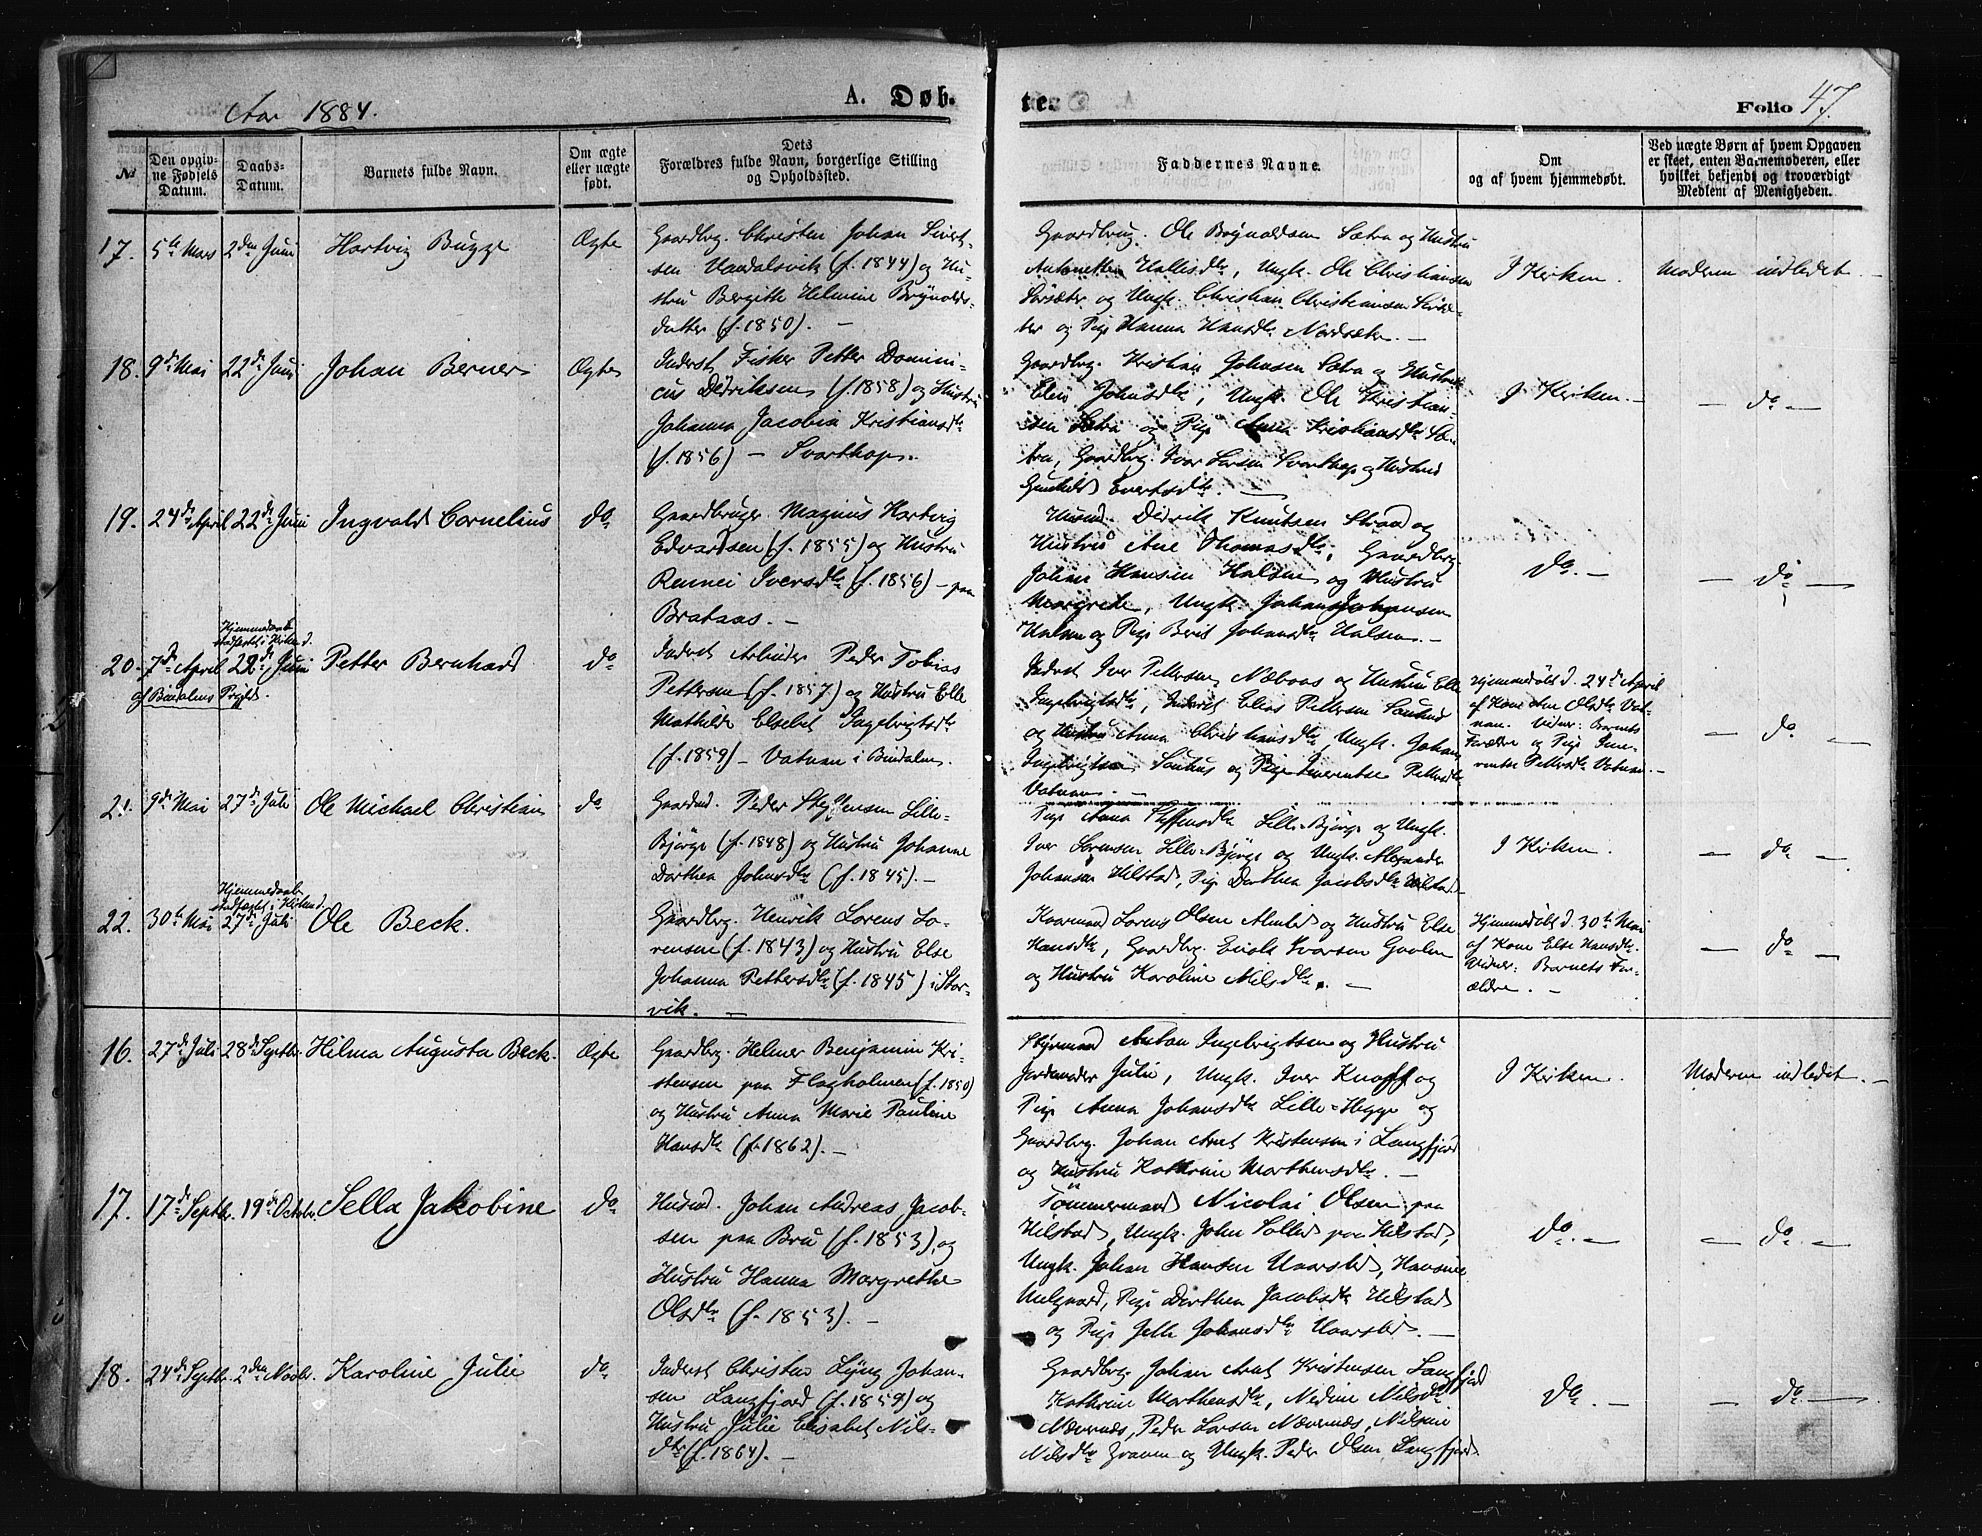 Aar 1884.
A. Døb-
te.
Folio 47.
№
Den opgiv-
ne Fødsels
Datum.
Daabs-
Datum.
Barnets fulde Navn.
Om ægte
eller uægte
født.
Dets
Forældres fulde Navn, borgerlige Stilling
og Opholdssted.
Faddernes Navne.
Om
og af hvem hjemmedøbt.
Ved uægte Børn af hvem Opgaven
er skeet, enten Barnemoderen, eller
hvilket bekjendt og troværdigt
Medlem af Menigheden.
17. 5te Mars 2den Juni Hartvig Bugge Ægte
Gaardbrg. Christen Johan Sivert-
sen Vandalsvik (f. 1844) og Hu-
stru Bergitte Helmine Brynolds-
datter (f. 1850). —
Gaardbrug. Ole Brynoldsen Sætra og Hustru
Antonette Hallisdtr, Ungk. Ole Christiansen
Sørsæter og Ungk. Christian Christiansen
ter og Pige Hanna Hansdtr Nordsæter. —
I Kirken.
Moderen indledet. —
18. 9de Mai 22de Juni Johan Berner Ægte
Inderst Fisker Petter Domini-
cus Didriksen (f. 1858) og Hustru
Johanna Jacobia Kristiansdtr
(f. 1856) — Svarthop.
Gaardbrg. Kristian Johnsen Sætra og Hustru
Elen Johnsdtr, Ungk. Ole Kristian-
sen Sætra og Pige Anna Kristiansdtr Sæ-
tra, Gaardbrg. Ivar Larsen Svarthop og Hustru
Gunhild Evertsdtr. —
I Kirken. —
— do —
19. 24de April 22de Juni Ingvald Cornelius do
Gaardbruger Magnus Hartvig
Edvardsen (f. 1855) og Hustru
Rennei Iversdtr (f. 1856) — paa
Brataas. —
Husmd. Didrik Knutsen Strand og
Hustru Ane Thomasdtr, Gaardbrg.
Johan Hansen Halsen og Hustru
Margrete, Ungk. Johan Johansen
Halsen og Pige Berit Johansdtr Halsen. —
do. —
— do —
Hjemmedaab
stadfæstet i Kirken d.
20. 7de April 22de Juni Petter Bernhard do
af Bindalens Prgjld.
Inderst Arbeider Peder Tobias
Pettersen (f. 1857) og Hustru Elle
Mathilde Elsebet Ingebrigtsdtr
(f. 1859) — Vatnan i Bindalen.
Inderst Iver Pettersen Næbaas og Hustru Elle
Ingebrigtsdtr, Inderst Elias Pettersen
og Hustru Anna Christiansdtr, Ungk. Johan
Ingebrigtsen og Pige Petersdtr
Vatnan. —
Hjemmedøbt d. 24de April
af Kone Ane Olsdtr Vat-
nan. Vidner: Barnets
Forældre og Pige
Pettersdtr Vatnan. —
— do —
21. 9de Mai 27de Juli Ole Michael Christian do
Gaardmd. Peder Steffensen Lille-
Bjørge (f. 1848) og Hustru Johanne
Dorthea Johnsdtr (f. 1845). —
Pige Anna Steffensdtr Lille-Bjørge og Ungk.
Iver Sørensen Lille-Bjørge og Ungk. Alexander
Johansen Hilstad, Pige Dorthea Jacobsdtr Hilstad.
I Kirken.
— do —
Hjemmedaab
stadfæstet i Kirken d.
22. 30te Mai 27de Juli Ole Beck.
Gaardbrg. Henrik Lorens Lo-
rensen (f. 1843) og Hustru Else
Johanna Pettersdtr (f. 1845) i Stor-
vik. —
Kaarmand Lorens Olsen Almlid og Hustru Else
Hansdtr, Gaardbrg. Enok Ivarsen
og Hustru Karoline Nilsdtr. —
Hjemmedøbt d. 30te Mai
af Kone Else Hansdtr.
Vidner: Barnets For-
ældre. —
— do —
16. 27de Juli 28de Septbr. Hilma Augusta Beck. Ægte
Gaardbrg. Helmer Benjamin Kri-
stensen paa Flagholmen (f. 1850)
og Hustru Anna Marie Pauline
Hansdtr (f. 1862). —
Styrmand Anton Ingebrigtsen og Hustru
Jordemoder Julie, Ungk. Iver Knoff og
Pige Anna Johansdtr Lille-Hegge og
Gaardbrg. Johan Arnt Kristensen i Langfjord
og Hustru Kathrine Marthensdtr. —
I Kirken.
Moderen indledet. —
17. 17de Septbr. 19de Octobr. Sella Jakobine do
Husmd. Johan Andreas Jacob-
sen paa Bru (f. 1853), og
Hustru Hanna Margrethe
Olsdtr (f. 1853). —
Tømmermand Nicolai Olsen paa
Hilstad, Ungk. John paa Hilstad,
Ungk. Johan Hansen Haarstad,
Pige Dorthea Jacobsdtr Hilstad
og Pige Johansdtr Haarstad. —
do. —
— do. —
18. 24de Septbr. 2den Novbr. Karoline Julie do
Inderst Christen Lyng Johan-
sen Langfjord (f. 1859) og
Hustru Julie Elisabet Nils-
dtr (f. 1864). —
Gaardbrg. Johan Arnt Kristensen Langfjord
Kathrine Marthensdtr, Nedine Nilsdtr
Nævernæs, Peder Larsen Nævernæs, Nilsine
Nilsdtr og Ungk. Peder Olsen Langfjord.
do. —
— do —